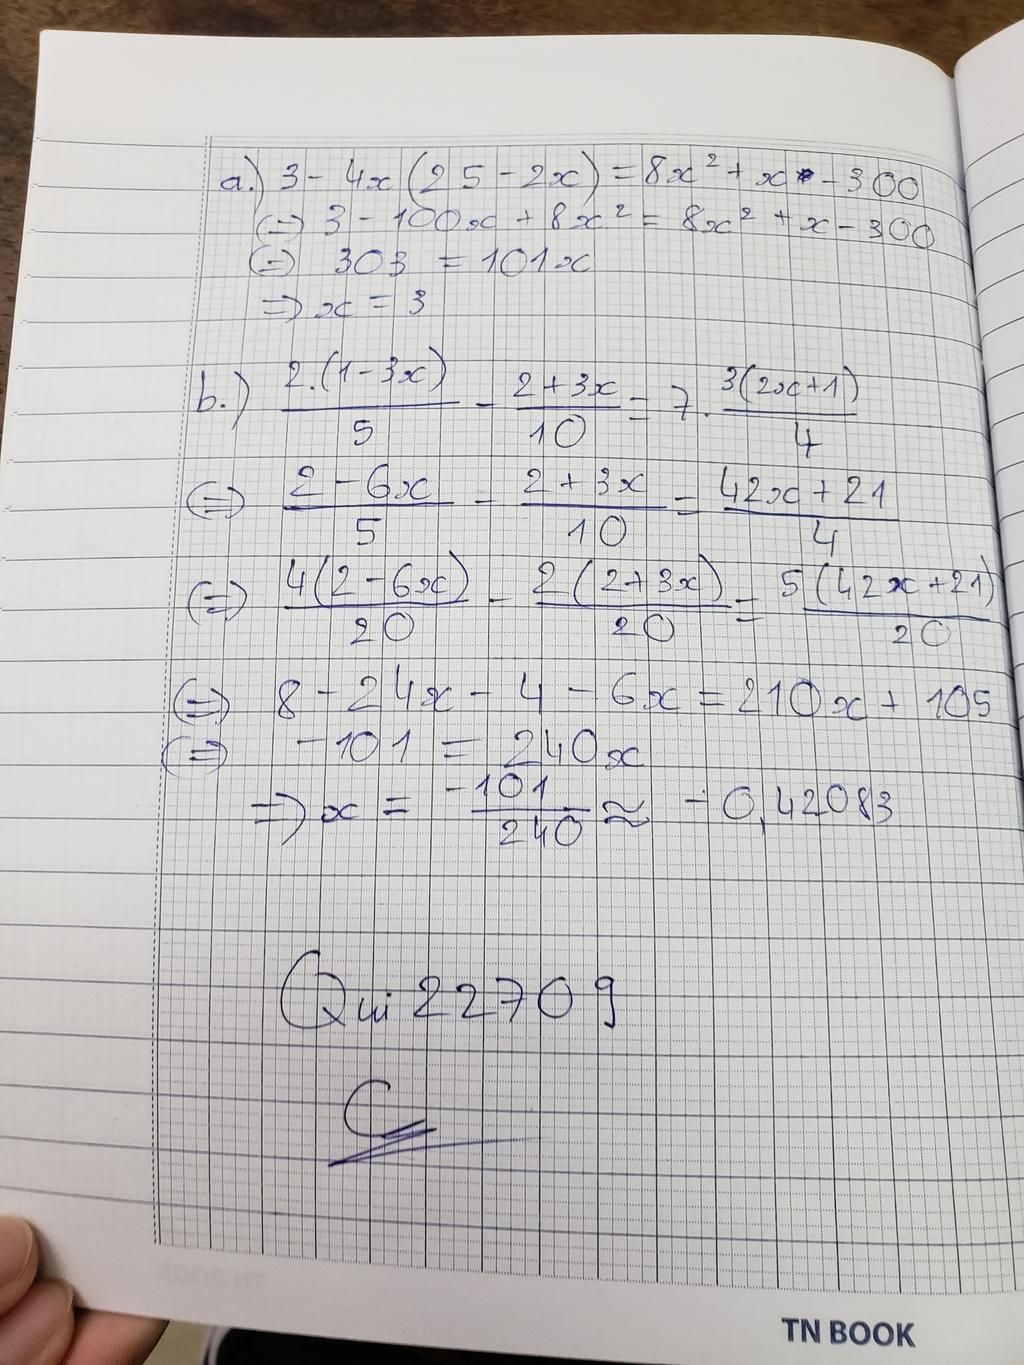 a.) 3 - 4x (25 - 2x) = 8x² + x - 300
(=) 3 - 100x + 8x² = 8x² + x - 300
(=) 303 = 101x
=) x = 3
b.) 2.(1-3x)/5 - 2+3x/10 = 7. 3(2x+1)/4
(=) 2-6x/5 - 2+3x/10 = 42x+21/4
(=) 4(2-6x)/20 - 2(2+3x)/20 = 5(42x+21)/20
(=) 8 - 24x - 4 - 6x = 210x + 105
(=) -101 = 240x
=) x = -101/240 ≈ -0,42083
Qui 22709
C
TN BOOK